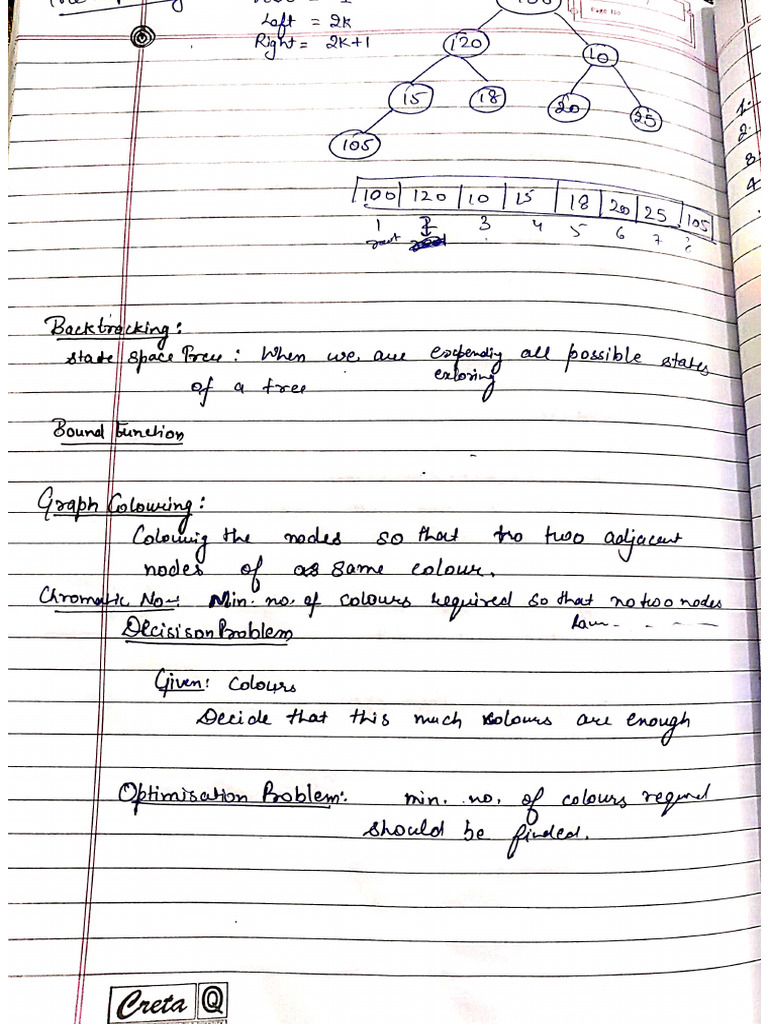 Left = 2k
Right = 2k+1
100
120
10
15
18
20
25
105
100 120 10 15 18 20 25 105
1 2 3 4 5 6 7 8
root
Backtracking:
state space Tree: When we are expending all possible states
exloring
of a tree
Bound Function
Graph Colouring:
Colouring the nodes so that no two adjacent
nodes of as same colour.
Chromatic No- Min. no. of colours required so that no two nodes
have - - - -
Decisison Problem
Given: Colours
Decide that this much colours are enough
Optimisation Problem: min. no. of colours required
should be finded.
1.
2.
3
4
Creta Q